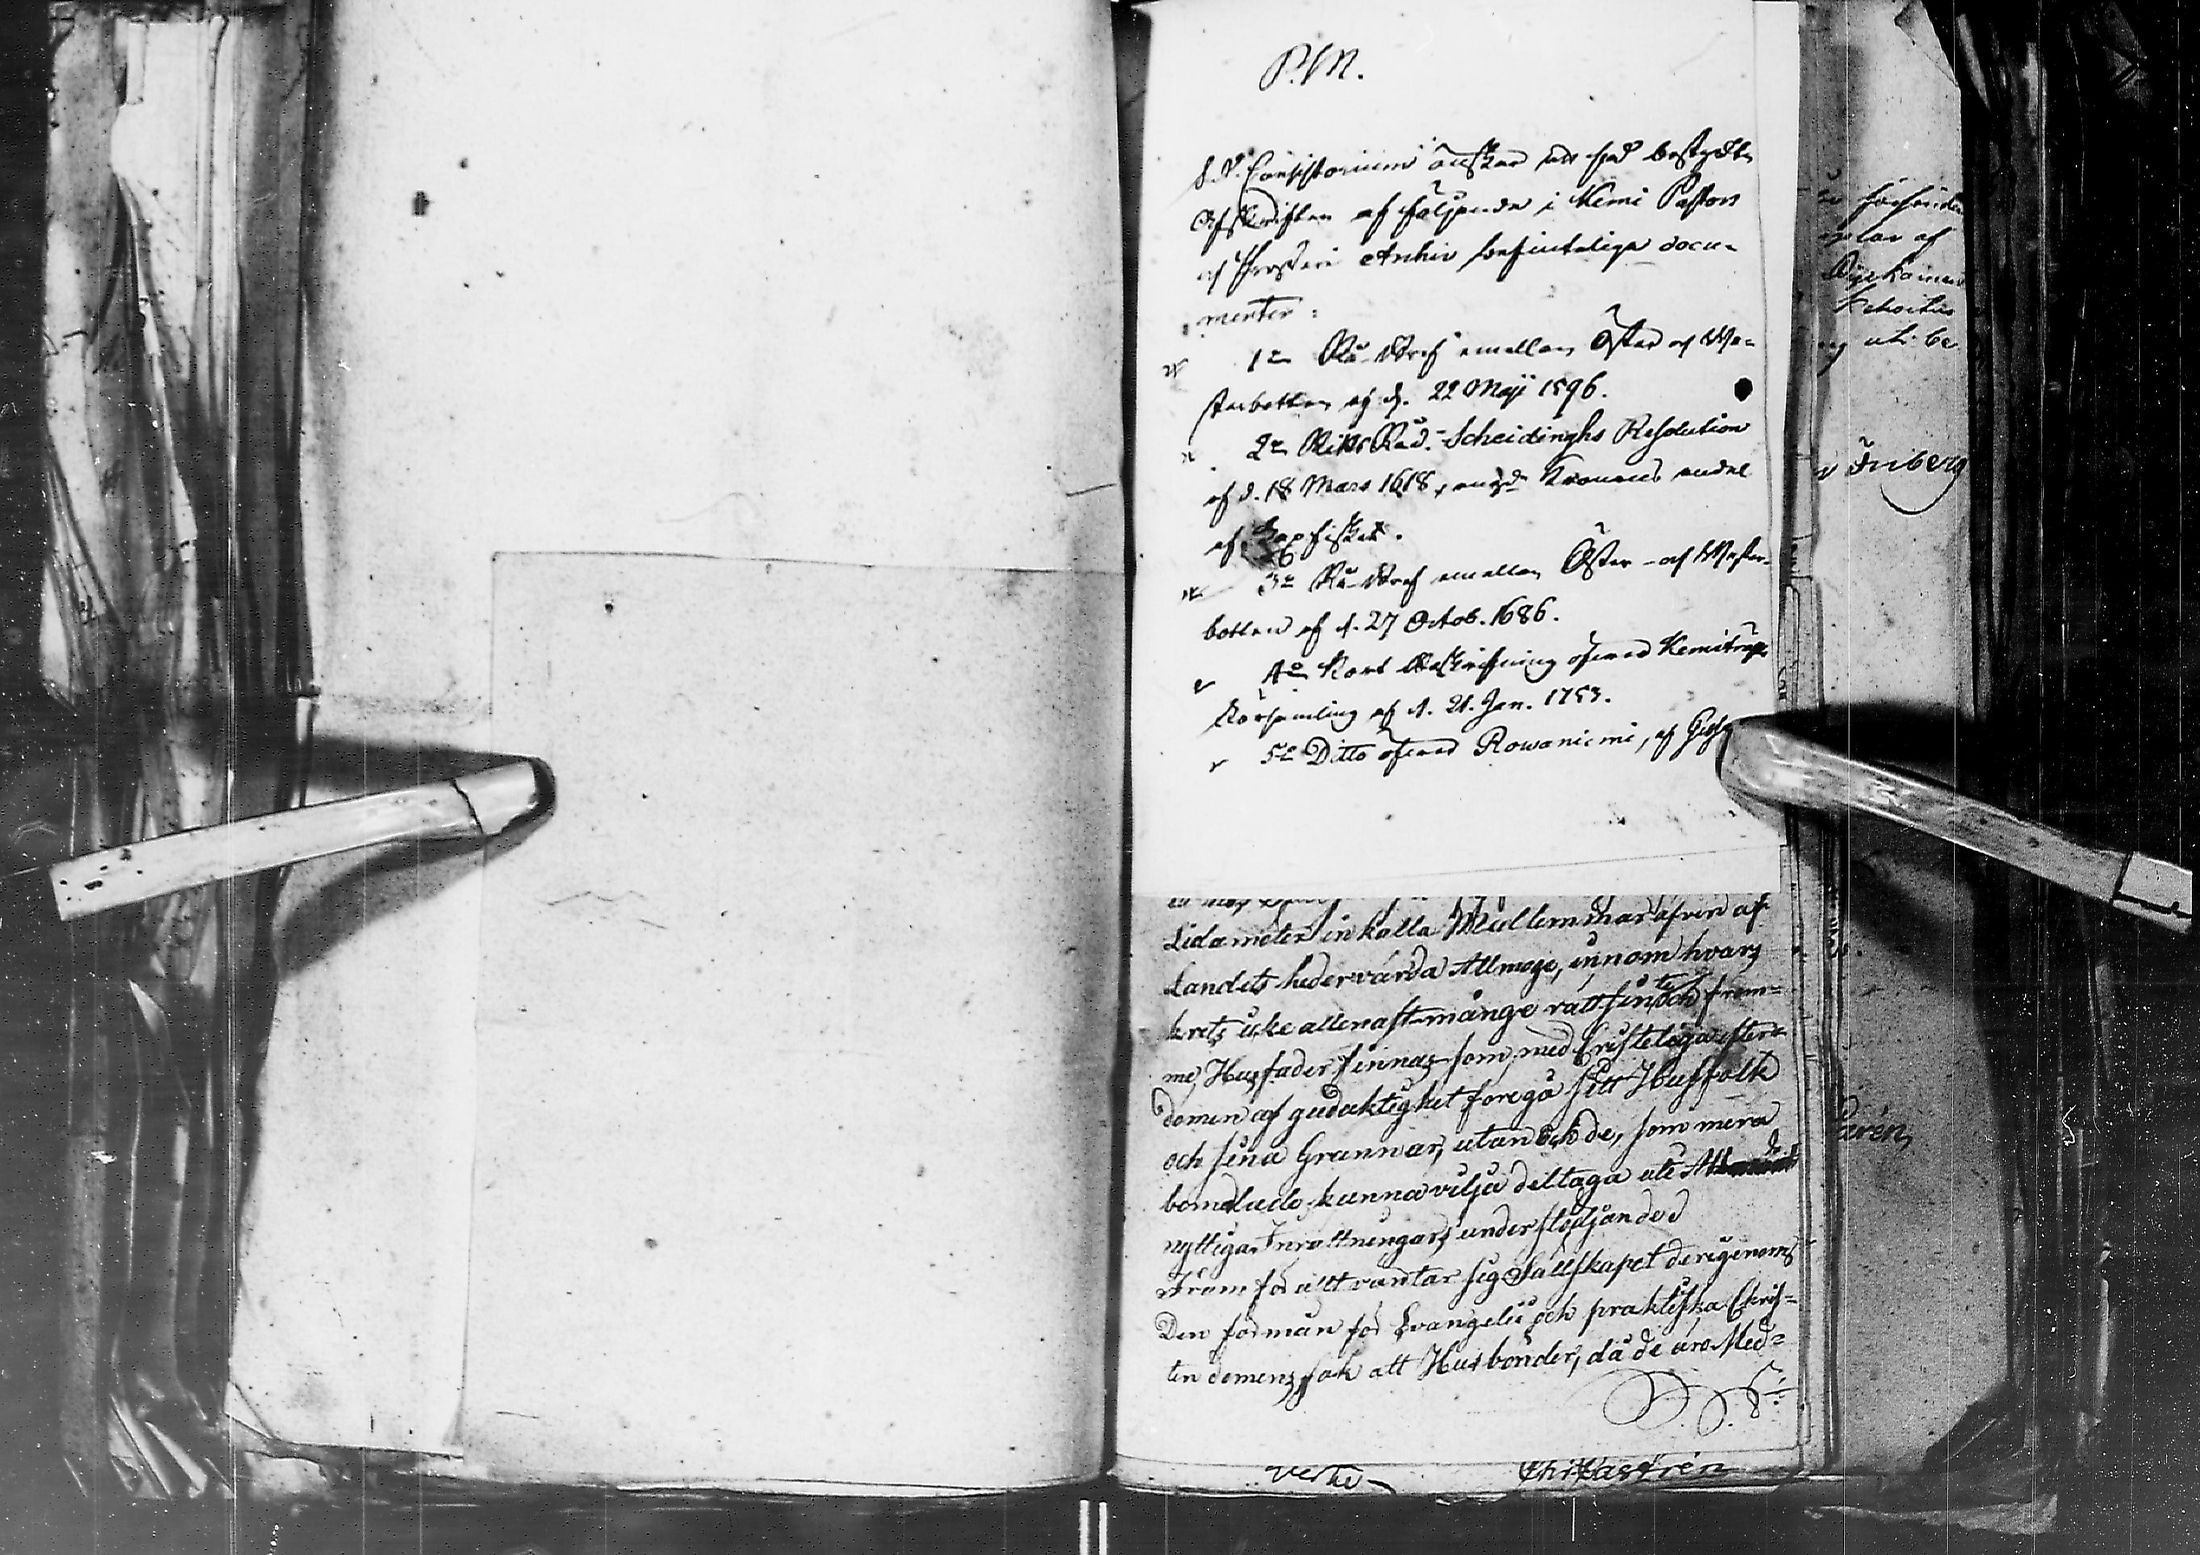 P.M.
Consistorium önskar att få bestyrkta
Afskrifter af följande i Kemi Pastors
och Prosteri Archiv befinteliga docu-
menter:
1o Rå-Bref emellan Öster och We-
sterbotten af d. 22 Maji 1596.
2o Riks Råd. Scheidinghs Resolution
af d. 18 Mars 1618, ang:de Kronans andel
af Laxfisket.
3o Rå-Bref emellan Öster- och Wester-
botten af d. 27 Octob. 1686.
4o Kort Beskrifning öfver Kemiträsk
Församling af d. 21. Jan. 1753.
5o Ditto öfver Rowaniemi, af
Ledamöter inkalla Medlemmar äfven af
Landets hedervärda Allmoge, innom hvars
krets icke allenast många rättsinte och from-
me Husfäder finnas som med Christeliga efter-
dömen af gudaktighet föregå sitt Husfolk
och sina Grannar, utan ock de, som mera
bemedlade kunna vilja deltaga uti
nyttiga Inrättningars understödjande
Framför allt väntar sig Sällskapet derigenom
Den förmån för Evangelii och praktiska Chris-
tendomens sak att Husbönder, då de äro Med-
Verte
Castrén
förhonda
af
uti be
Friberg